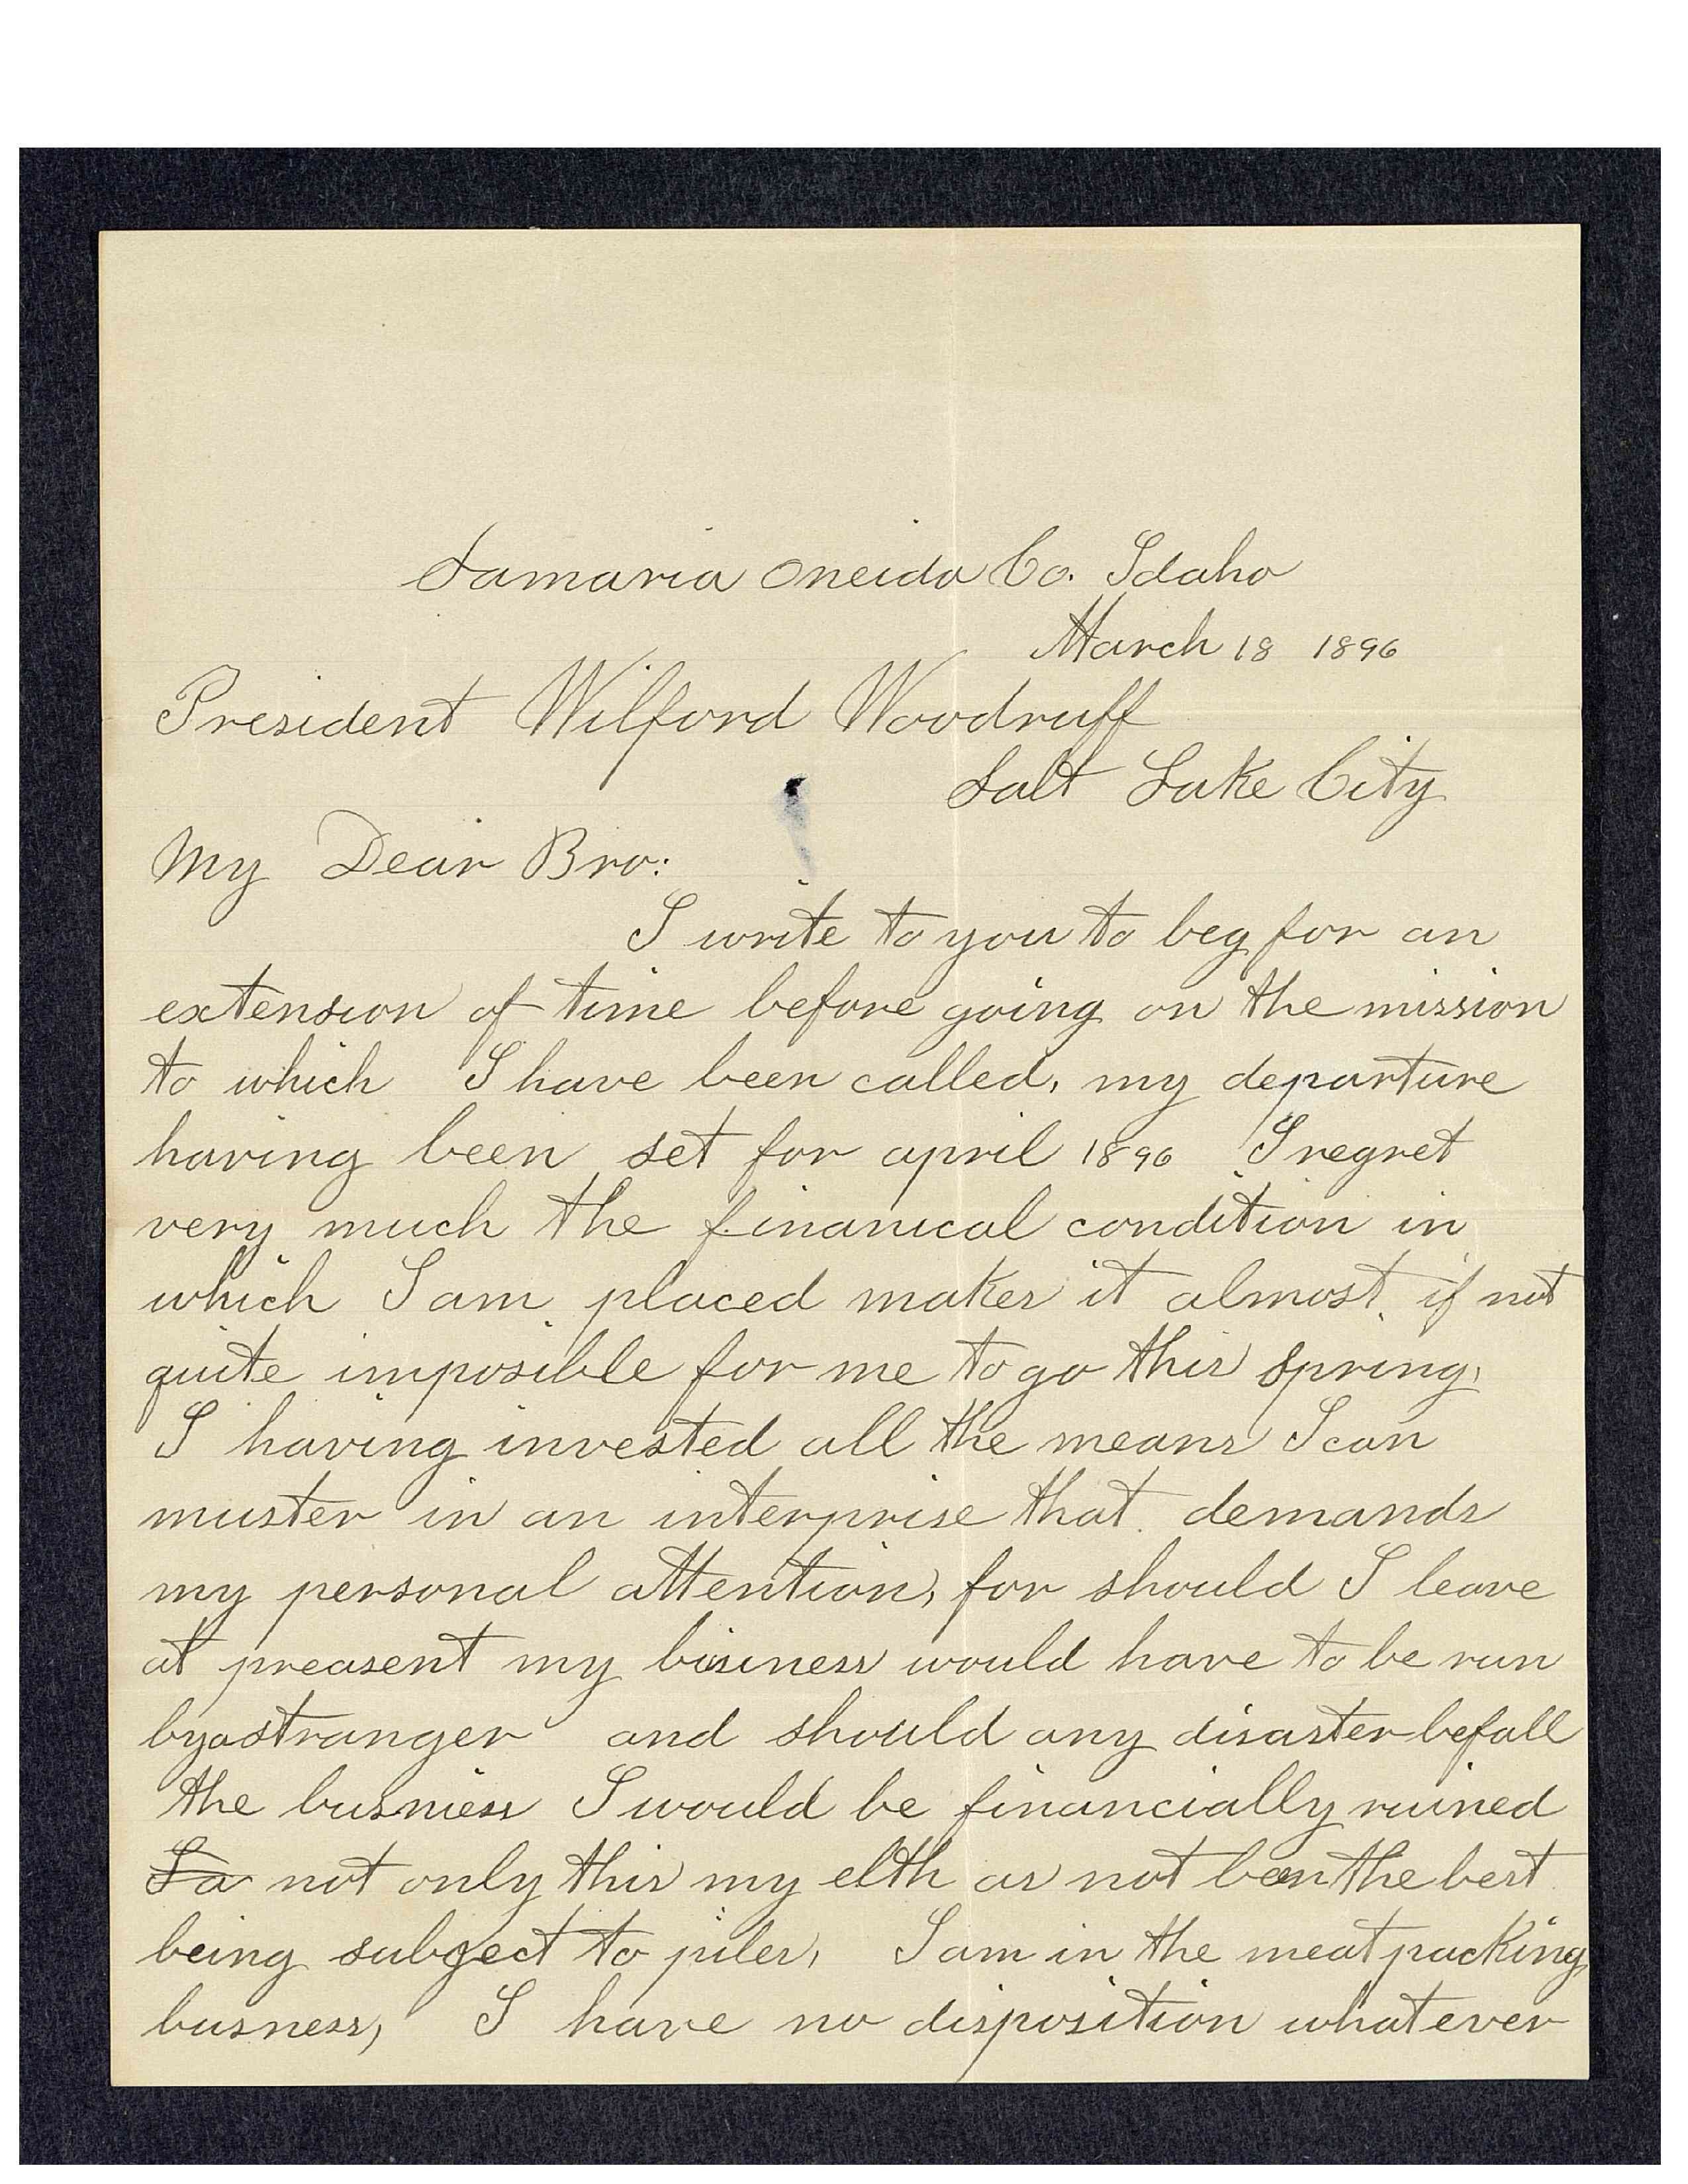 Samaria Oneida Co. Idaho
March 18 1896
President Wilford Woodruff
Salt Lake City
My Dear Bro:
I write to you to beg for an
extension of time before going on the mission
to which I have been called, my departure
having been set for april 1896 I regret
very much the finanical condition in
which I am placed makes it almost if not
quite imposible for me to go this spring,
I having invested all the means I can
muster in an interprise that demands
my personal attention, for should I leave
at preasent my bisiness would have to be run
by a stranger and should any disaster befall
the busniess I would be financially ruined
I a not only this my elth as not been the best
being subject to piles, I am in the meat packing
busness, I have no disposition whatever